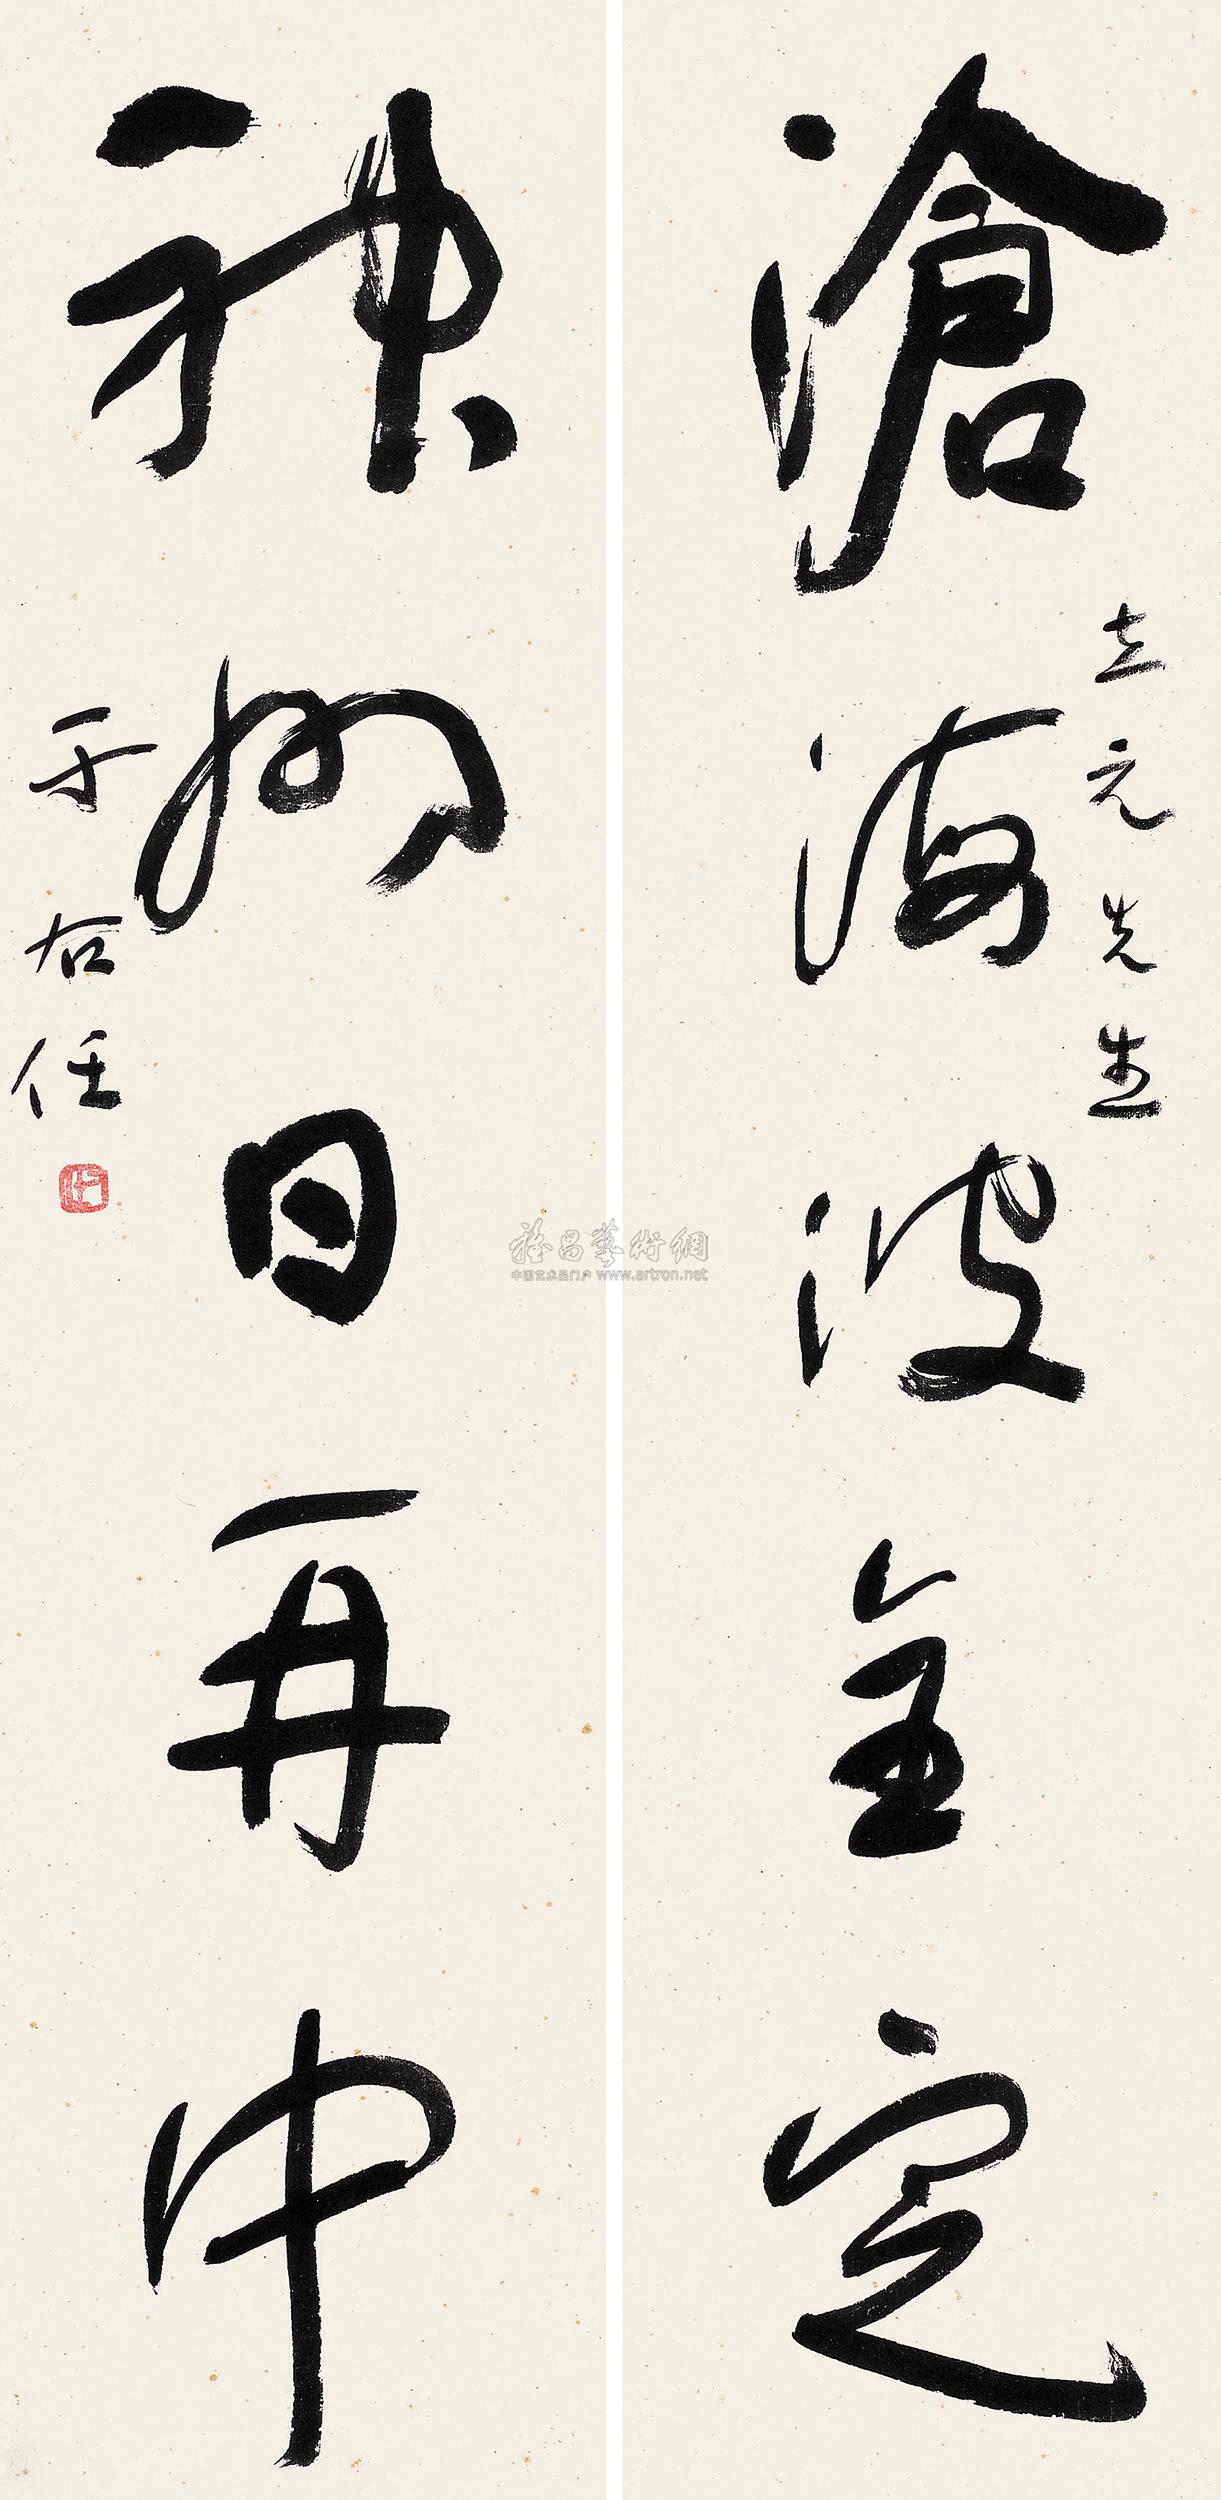 滄海波全定
立元先生
神州日再中
于右任
雅昌藝術網
中国艺术品门户 www.artron.net